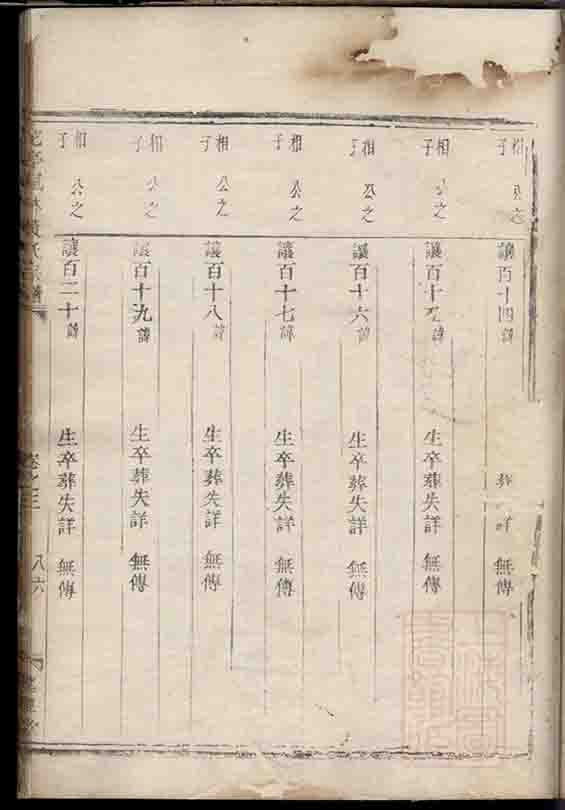 相公之子 讓百十四諱 葬 詳 無傳
相公之子 讓百十五諱 生卒葬失詳 無傳
相公之子 讓百十六諱 生卒葬失詳 無傳
相公之子 讓百十七諱 生卒葬失詳 無傳
相公之子 讓百十八諱 生卒葬失詳 無傳
相公之子 讓百十九諱 生卒葬失詳 無傳
相公之子 讓百二十諱 生卒葬失詳 無傳
氏宗譜 卷之三 八六